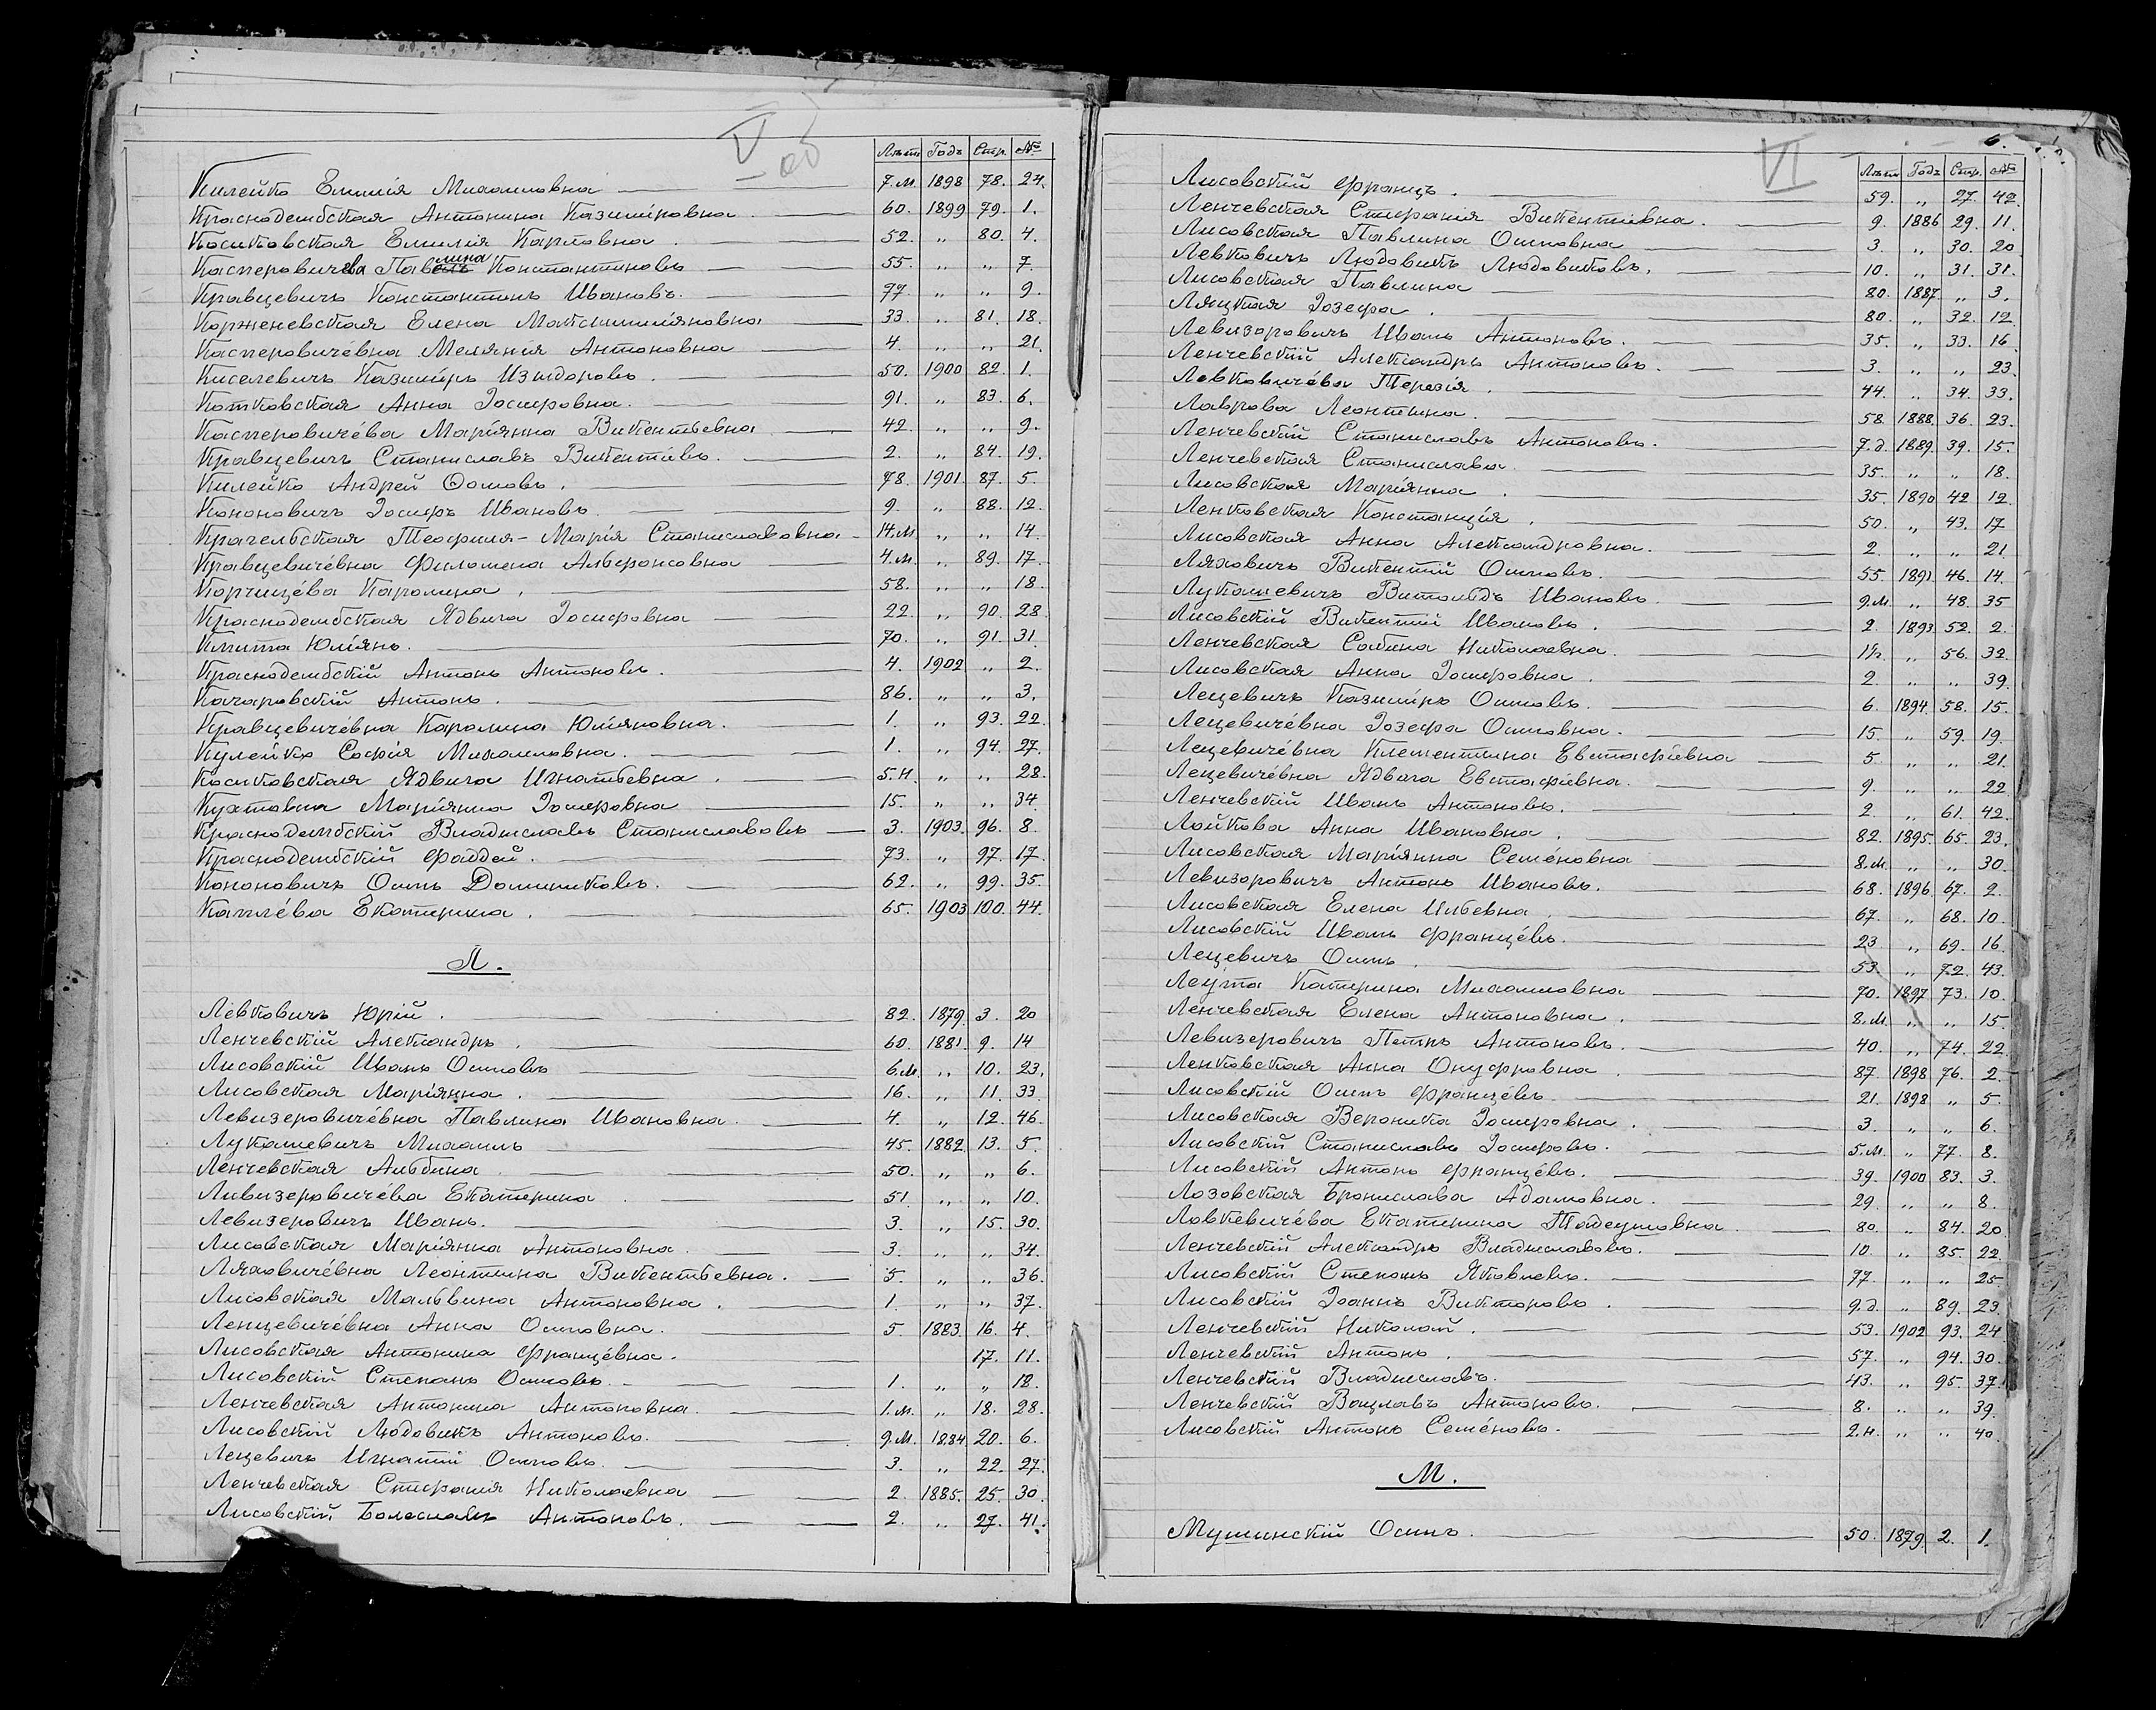 V об
Лѣта Годъ Стр. №
Килейко Емилія Михаиловна 7.м. 1898 78. 24.
Краснодембская Антонина Казиміровна 60. 1899 79. 1.
Косиковская Емилія Карловна 52. „ 80. 4.
Касперовичева Павлина Константиновъ 55. „ „ 7.
Кравцевичъ Константинъ Ивановъ. 77. „ „ 9.
Корженевская Елена Максимиліяновна 33. „ 81. 18.
Касперовичéвна Меланія Антоновна 4. „ „ 21.
Киселевичъ Казиміръ Изидоровъ. 50. 1900 82. 1.
Котковская Анна Іосифовна. 91. „ 83. 6.
Касперовичéва Маріянна Викентьевна 42. „ „ 9.
Кравцевичъ Станиславъ Викентіевъ. 2. „ 84. 19.
Килейко Андрей Осиповъ. 78. 1901. 87. 5.
Кононовичъ Іосифъ Ивановъ. 9. „ 88. 12.
Крачельская Теофиля-Марія Станиславовна 14.м. „ „ 14.
Кравцевичéвна Филомена Альфонсовна 4.м. „ 89. 17.
Корчицéва Каролина. 58. „ „ 18.
Краснодембская Ядвига Іосифовна 22. „ 90. 28.
Кмита Юліянъ. 70. „ 91. 31.
Краснодембскій Антонъ Антоновъ. 4. 1902 „ 2.
Качаровскій Антонъ. 86. „ „ 3.
Кравцевичéвна Каролина Юліяновна. 1. „ 93. 22.
Кулейко Софія Михаиловна. 1. „ 94. 27.
Косиковская Ядвига Игнатьевна. 5.н. „ „ 28.
Кухтовна Маріянна Іосифовна 15. „ „ 34.
Краснодембскій Владиславъ Станиславовъ 3. 1903. 96. 8.
Краснодембскій Фаддей. 73. „ 97. 17.
Кононовичъ Осипъ Доминиковъ. 62. „ 99. 35.
Каплéва Екатерина. 65. 1903 100. 44.
Л.
Левковичъ Юрій. 82. 1879. 3. 20
Ленчевскій Александръ. 60. 1881. 9. 14
Лисовскій Иванъ Осиповъ 6.м. „ 10. 23.
Лисовская Маріянна. 16. „ 11. 33.
Левизеровичéвна Павлина Ивановна. 4. „ 12. 46.
Лукашевичъ Михаилъ 45. 1882. 13. 5.
Ленчевская Альбина. 50. „ „ 6.
Ливизеровичéва Екатерина. 51. „ „ 10.
Левизеровичъ Иванъ. 3. „ 15. 30.
Лисовская Маріянна Антоновна. 3. „ „ 34.
Ляховичéвна Леонтина Викентьевна. 5. „ „ 36.
Лисовская Мальвина Антоновна. 1. „ „ 37.
Ленцевичéвна Анна Осиповна. 5. 1883. 16. 4.
Лисовская Антонина Францéвна. 17. 11.
Лисовскій Степанъ Осиповъ. 1. „ „ 18.
Ленчевская Антонина Антоновна. 1.м. „ 18. 28.
Лисовскій Людовикъ Антоновъ. 9.м. 1884 20. 6.
Лецевичъ Игнатій Осиповъ. 3. „ 22. 27.
Ленчевская Стефанія Николаевна 2. 1885. 25. 30.
Лисовскій Болеславъ Антоновъ. 2. „ 27. 41.
VI 6.
Лѣта Годъ Стр. №
Лисовскій Францъ. 59. „ 27. 42.
Ленчевская Стефанія Викентіевна. 9. 1886 29. 11.
Лисовская Павлина Осиповна 3. „ 30. 20
Левковичъ Людовикъ Людовиковъ. 10. „ 31. 31.
Лисовская Павлина 80. 1887. „ 3.
Ляцкая Іозефа. 80. „ 32. 12.
Левизоровичъ Иванъ Антоновъ. 35. „ 33. 16.
Ленчевскій Александръ Антоновъ. 3. „ „ 23.
Левковичéва Терезія. 44. „ 34. 33.
Лаврова Леонтина. 58. 1888. 36. 23.
Ленчевскій Станиславъ Антоновъ. 7.д. 1889. 39. 15.
Ленчевская Станислава. 35. „ „ 18.
Лисовская Маріянна. 35. 1890 42 12.
Ленковская Констанція. 50. „ 43. 17
Лисовская Анна Александровна. 2. „ „ 21.
Ляховичъ Викентій Осиповъ. 55. 1891. 46. 14.
Лукашевичъ Витольдъ Ивановъ. 9.м. „ 48. 35
Лисовскій Викентій Ивановъ. 2. 1893. 52. 2.
Ленчевская Сабина Николаевна. 1½. „ 56. 32.
Лисовская Анна Іосифовна. 2. „ „ 39.
Лецевичъ Казиміръ Осиповъ. 6. 1894. 58. 15.
Лецевичéвна Іозефа Осиповна. 15. „ 59. 19.
Лецевичéвна Клементина Евстафіевна 5. „ „ 21.
Лецевичéвна Ядвига Евстафіевна. 9. „ „ 22
Ленчевскій Иванъ Антоновъ. 2. „ 61. 42.
Лойкова Анна Ивановна. 82. 1895. 65. 23.
Лисовская Маріянна Семéновна 8.м. „ „ 30.
Левизоровичъ Антонъ Ивановъ. 68. 1896. 67. 2.
Лисовская Елена Ильевна. 67. „ 68. 10.
Лисовскій Иванъ Францéвъ. 23. „ 69. 16.
Лецевичъ Осипъ. 53. „ 72. 43.
Леута Катерина Михаиловна 70. 1897. 73. 10.
Ленчевская Елена Антоновна. 8.м. „ „ 15.
Левизеровичъ Петръ Антоновъ. 40. „ 74. 22.
Ленковская Анна Онуфровна. 87. 1898 76. 2.
Лисовскій Осипъ Францéвъ. 21. 1898 „ 5.
Лисовская Вероника Іосифовна. 3. „ „ 6.
Лисовскій Станиславъ Іосифовъ. 5.м. „ 77. 8.
Лисовскій Антонъ Францéвъ. 39. 1900 83. 3.
Лозовская Бронислава Адамовна. 29. „ „ 8.
Ловкевичéва Екатерина Тадеушовна 80. „ 84. 20
Ленчевскій Александръ Владиславовъ. 10. „ 85. 22
Лисовскій Степанъ Яковлевъ. 77. „ „ 25
Лисовскій Іоаннъ Викторовъ. 9.д. „ 89. 23.
Ленчевскій Николай. 53. 1902. 93. 24
Ленчевскій Антонъ. 57. „ 94. 30.
Ленчевскій Владиславъ. 43. „ 95. 37.
Ленчевскій Вацлавъ Антоновъ. 8. „ „ 39.
Лисовскій Антонъ Семéновъ. 2.н. „ „ 40.
М.
Мушинскій Осипъ. 50. 1879. 2. 1.